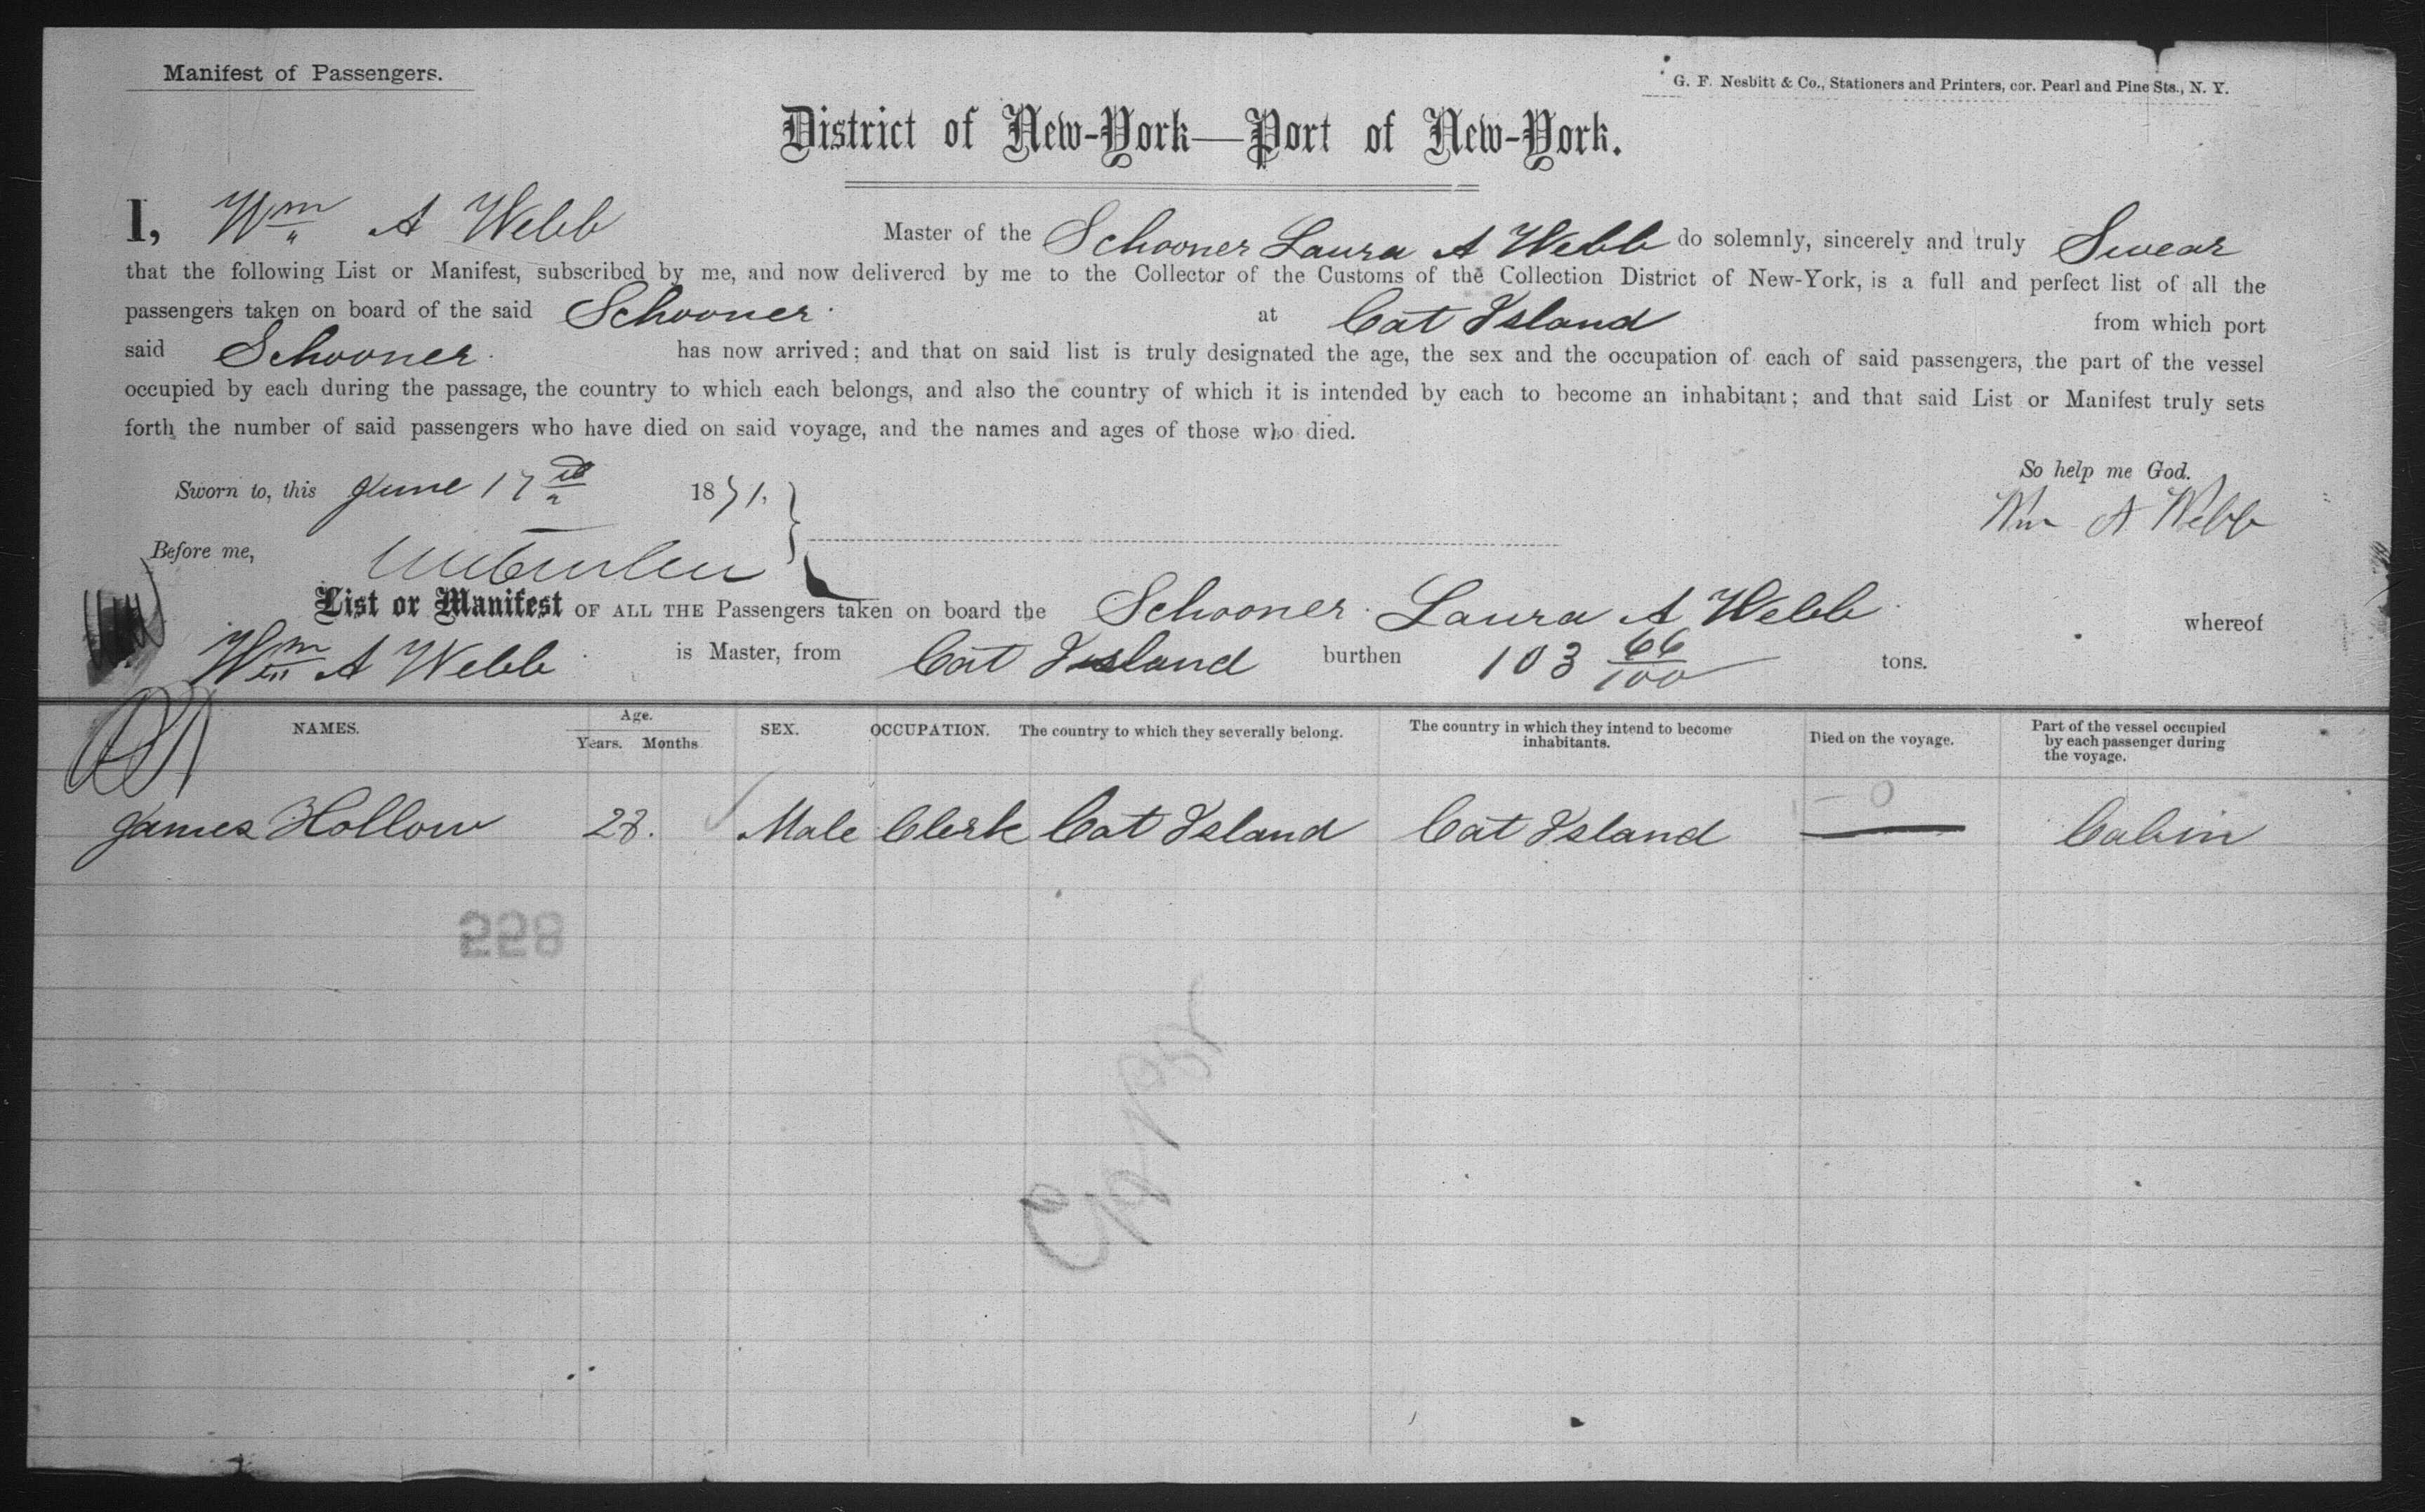 Manifest of Passengers.
G. F. Nesbitt & Co., Stationers and Printers, cor. Pearl and Pine Sts., N. Y.
District of New-York—Port of New-York.
I, Wm A Webb Master of the Schooner Laura A Webb do solemnly, sincerely and truly Swear
that the following List or Manifest, subscribed by me, and now delivered by me to the Collector of the Customs of the Collection District of New-York, is a full and perfect list of all the
passengers taken on board of the said Schooner at Cat Island from which port
said Schooner has now arrived; and that on said list is truly designated the age, the sex and the occupation of each of said passengers, the part of the vessel
occupied by each during the passage, the country to which each belongs, and also the country of which it is intended by each to become an inhabitant; and that said List or Manifest truly sets
forth the number of said passengers who have died on said voyage, and the names and ages of those who died.
So help me God.
Sworn to, this June 17 1871.
Wm A Webb
Before me,
List or Manifest OF ALL THE Passengers taken on board the Schooner Laura A Webb whereof
Wm A Webb is Master, from Cat Island burthen 103 66/100 tons.
NAMES. Age. Years. Months SEX. OCCUPATION. The country to which they severally belong. The country in which they intend to become inhabitants. Died on the voyage. Part of the vessel occupied by each passenger during the voyage.
James Hollow 28. Male Clerk Cat Island Cat Island — Cabin